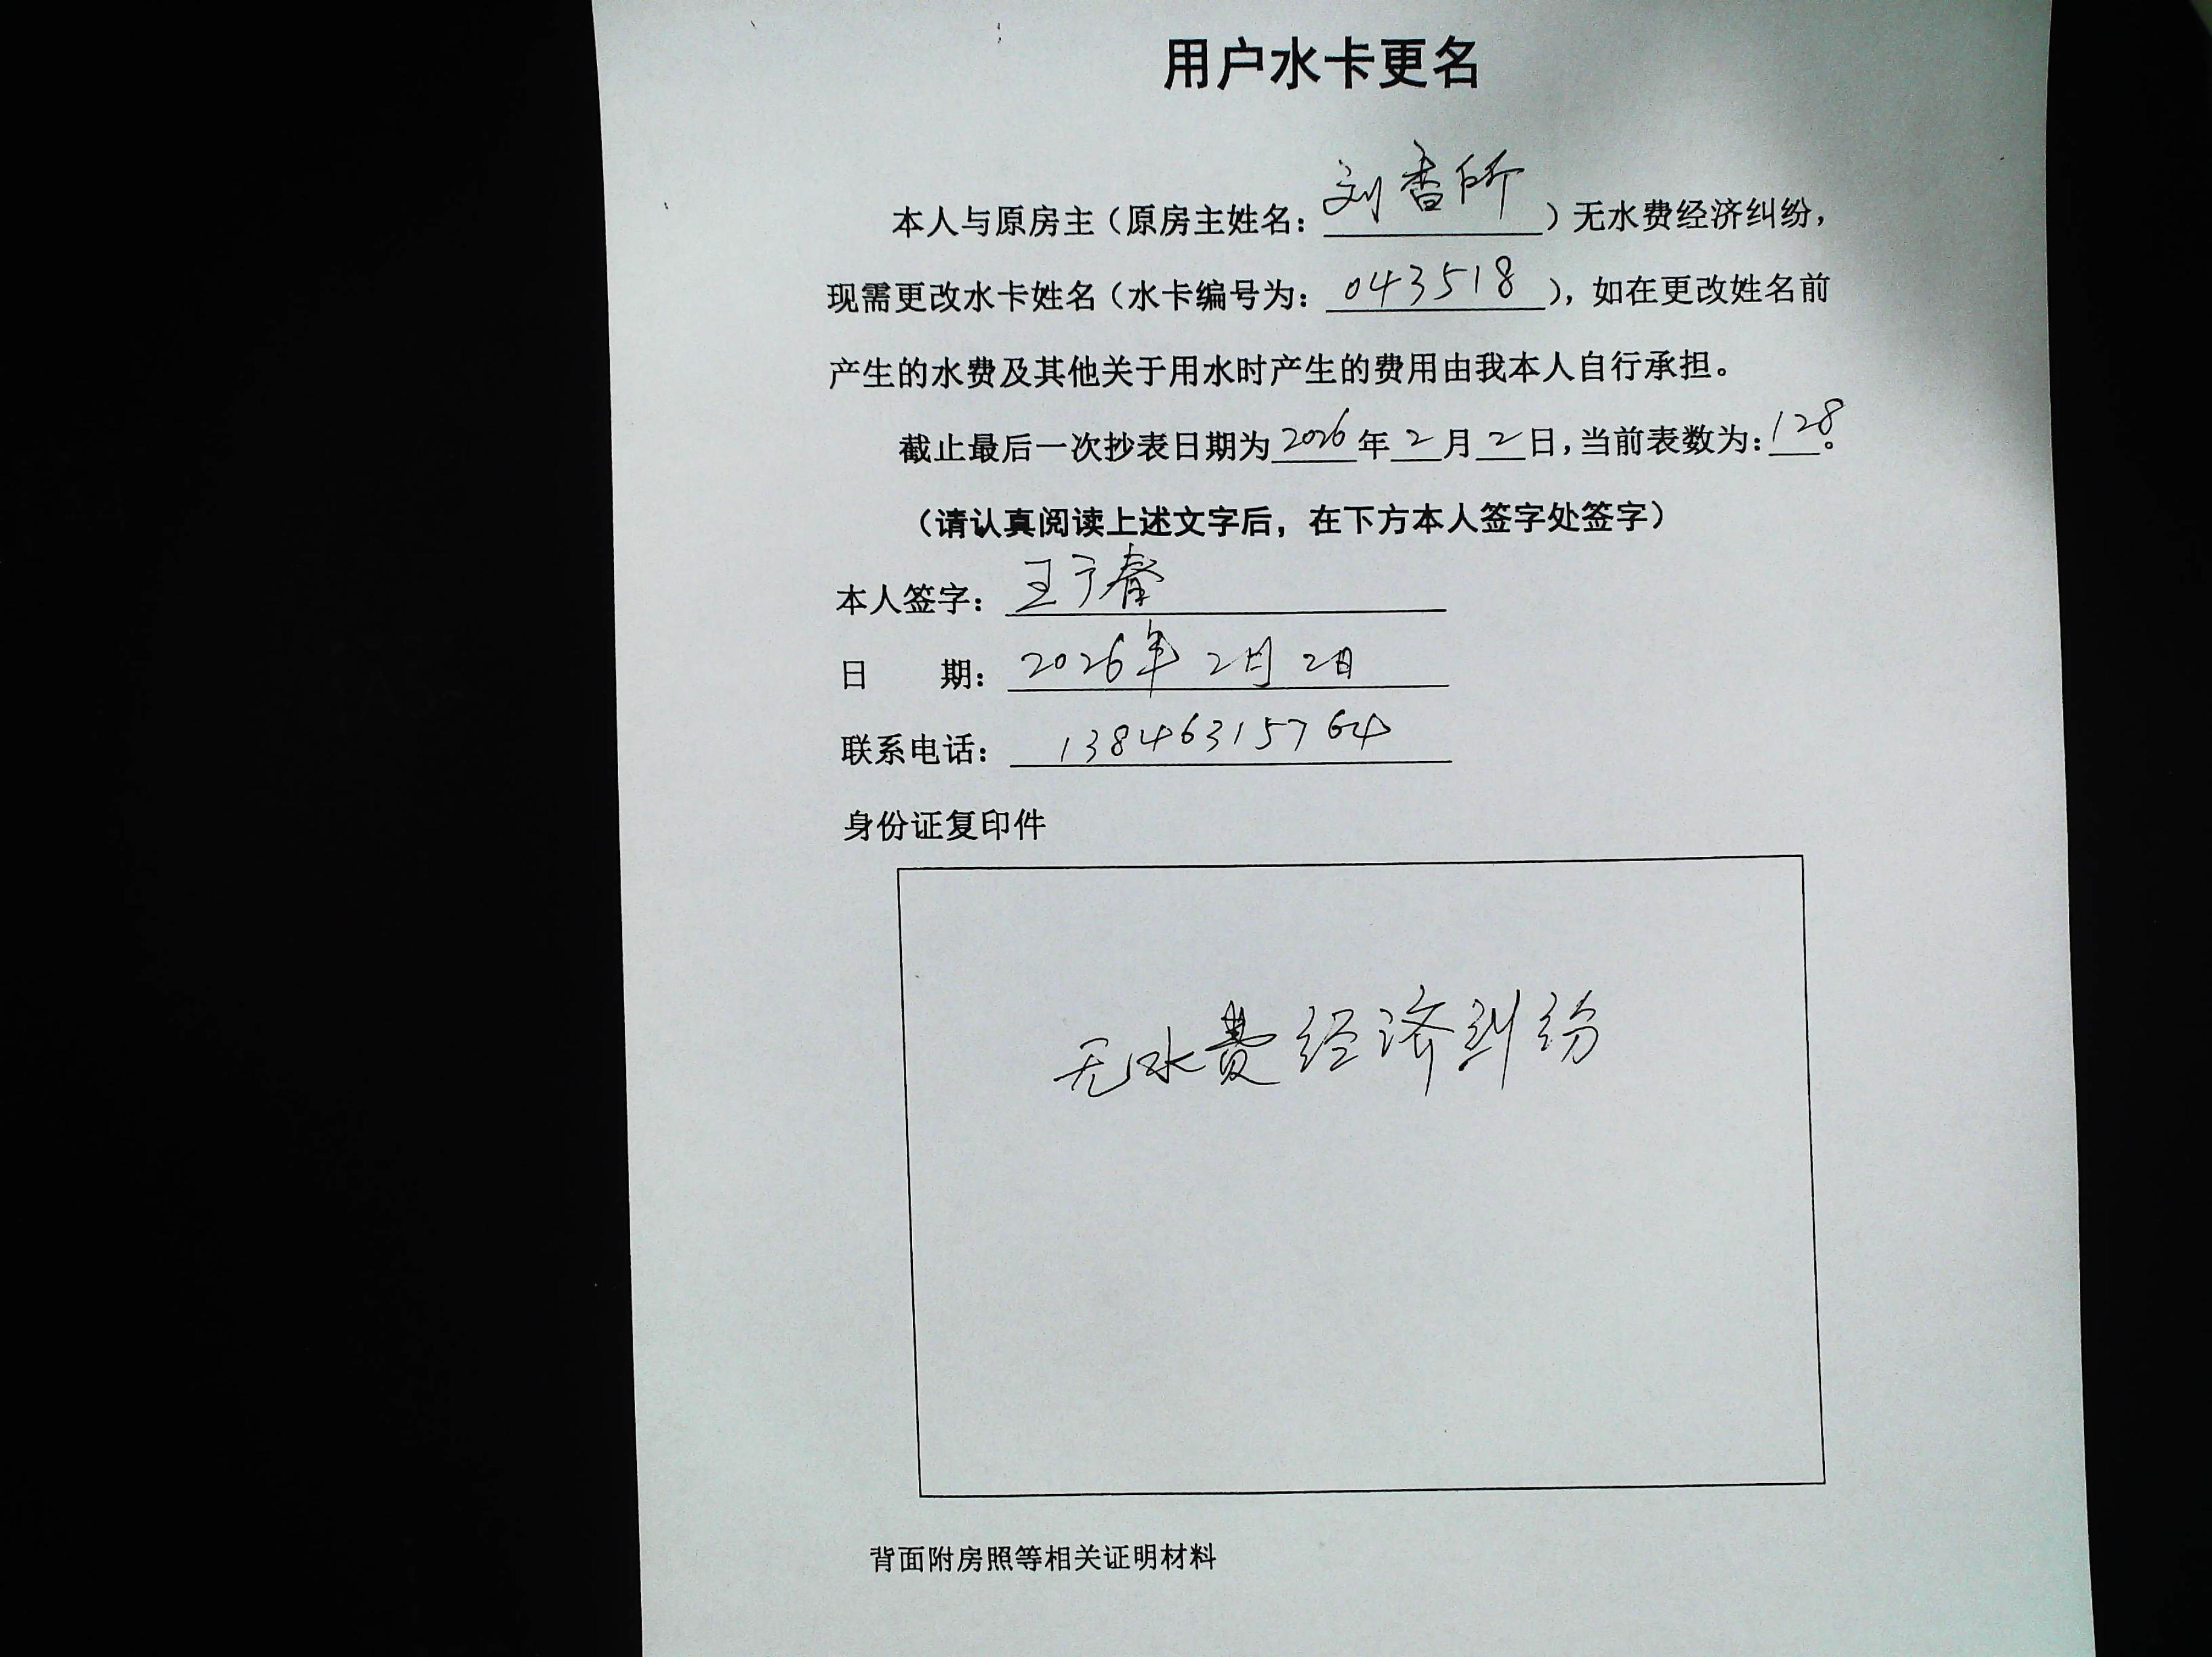 用户水卡更名
本人与原房主（原房主姓名：刘香）无水费经济纠纷，
现需更改水卡姓名（水卡编号为：043518），如在更改姓名前
产生的水费及其他关于用水时产生的费用由我本人自行承担。
截止最后一次抄表日期为2026年2月2日，当前表数为：128。
（请认真阅读上述文字后，在下方本人签字处签字）
本人签字：王
日 期：2026年2月2日
联系电话：13846315764
身份证复印件
无水费经济纠纷
背面附房照等相关证明材料